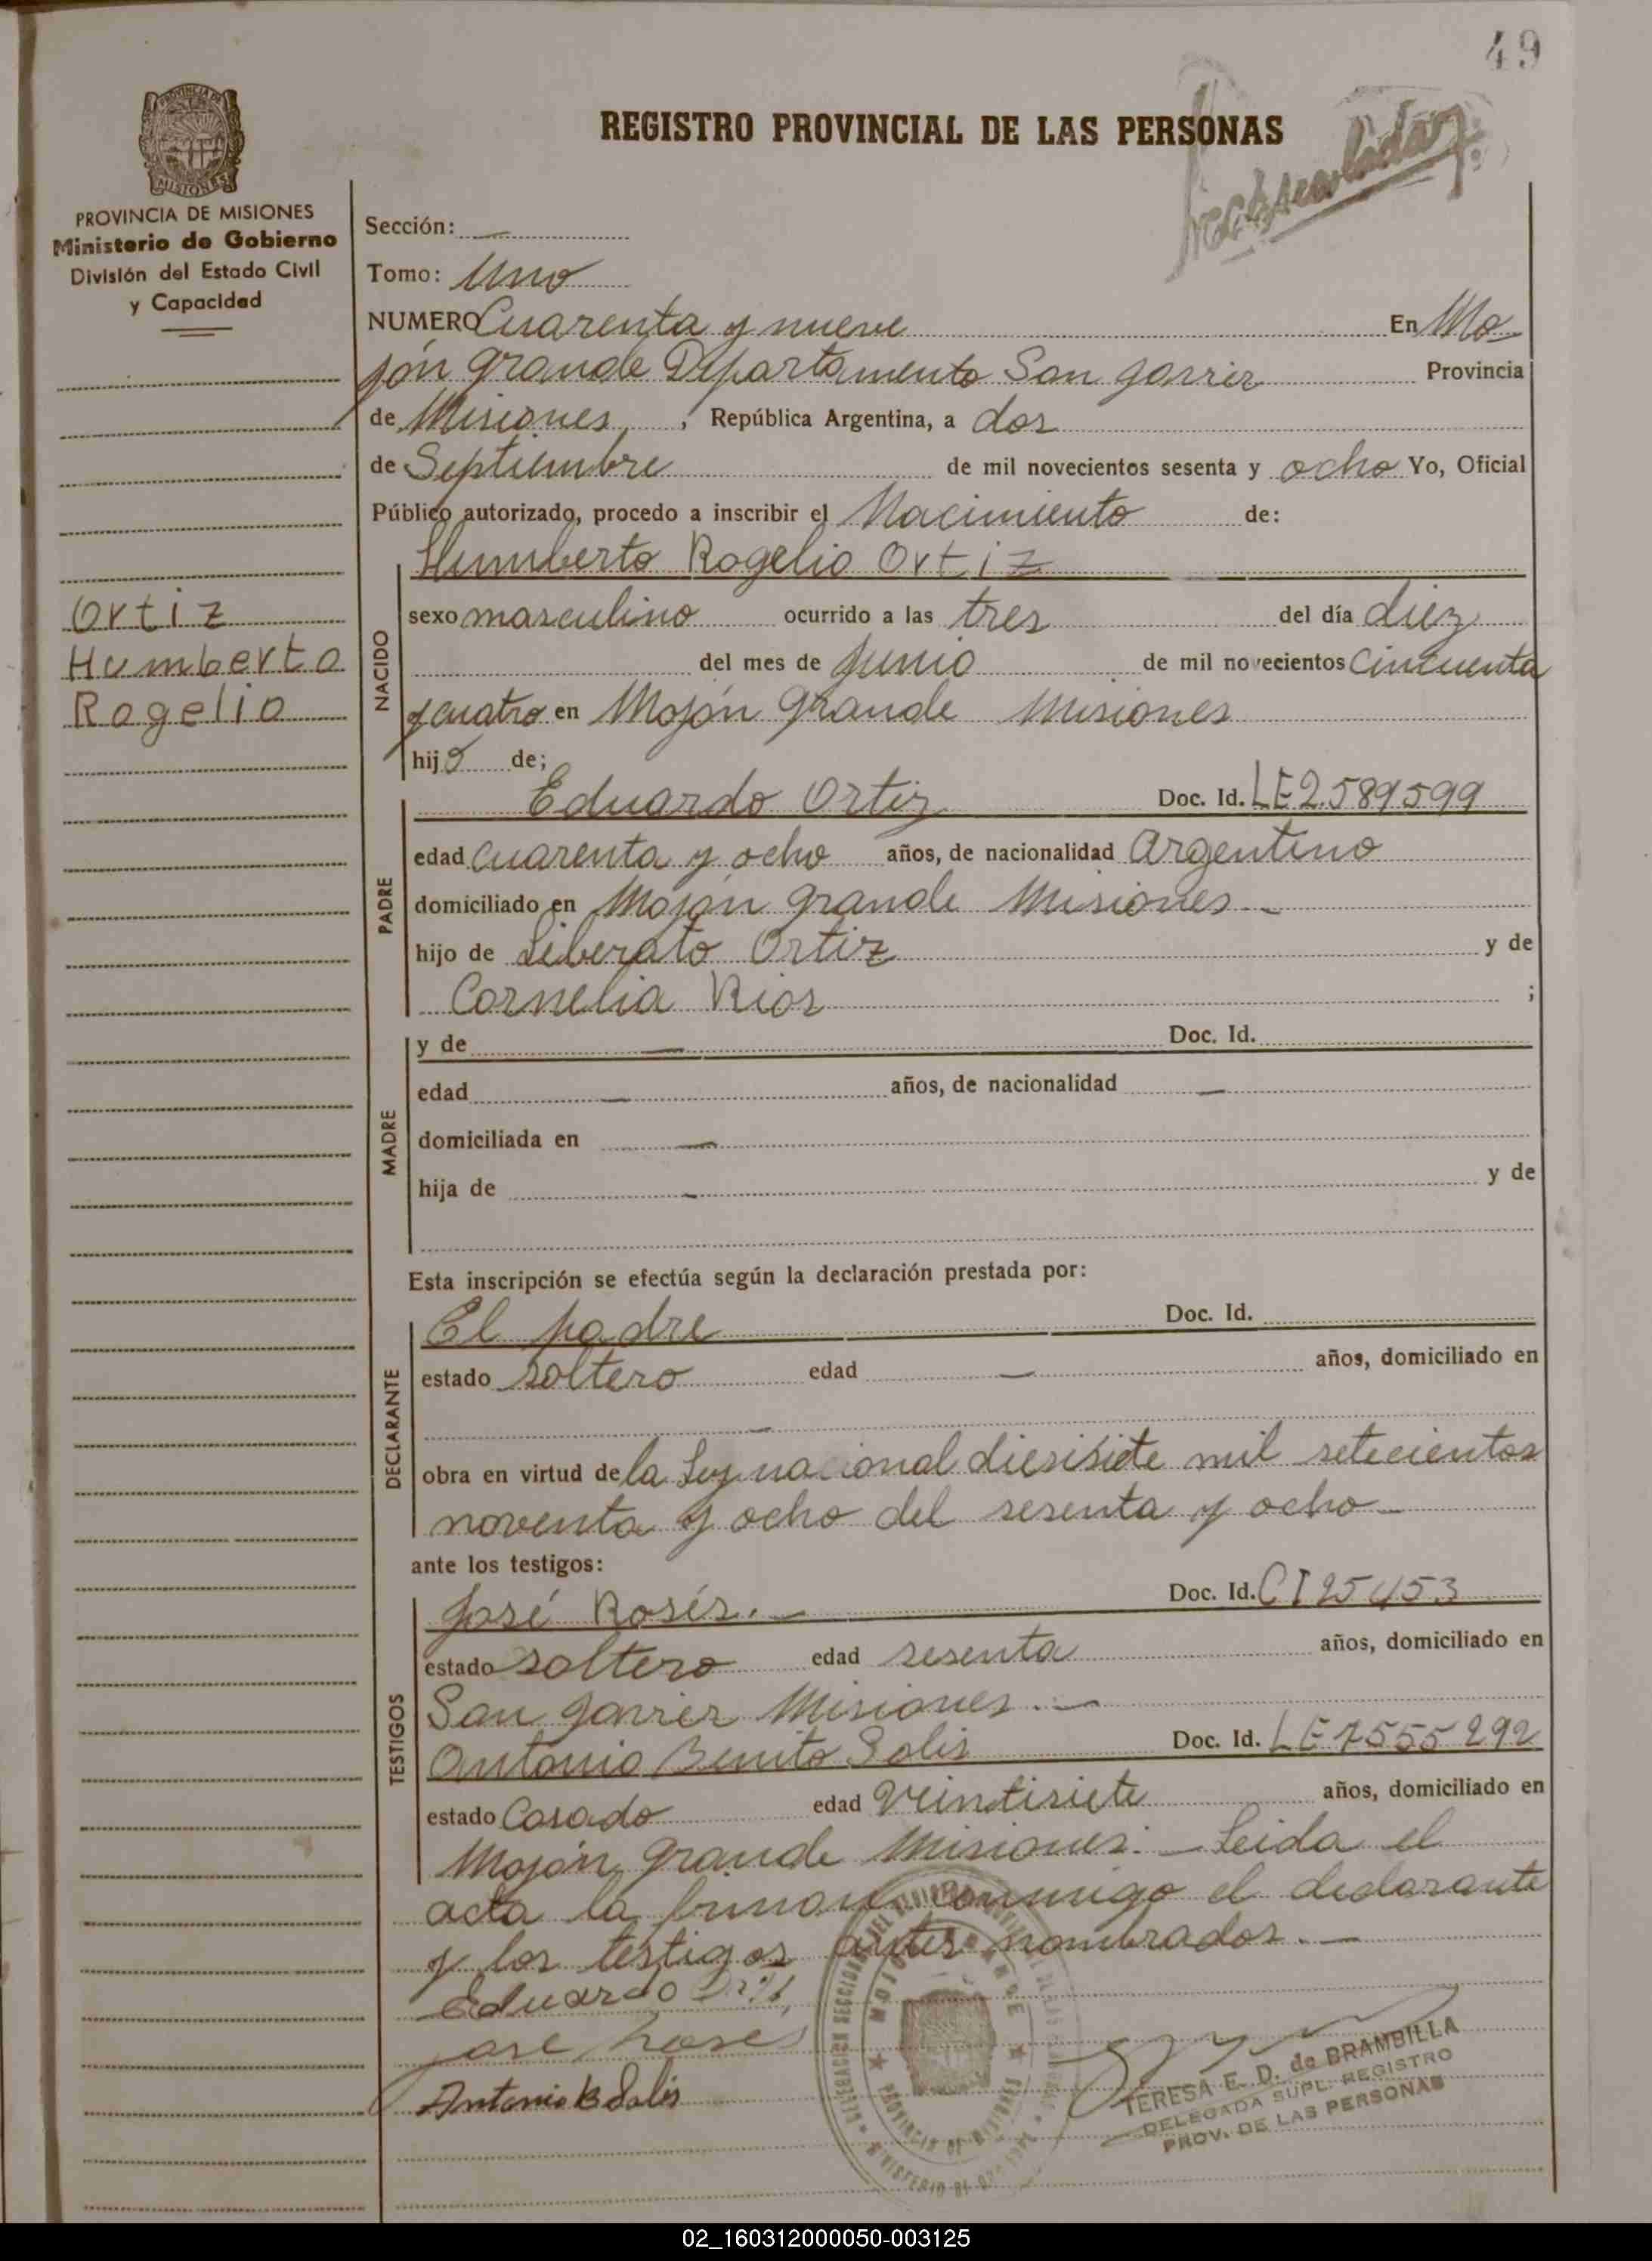 49
REGISTRO PROVINCIAL DE LAS PERSONAS
PROVINCIA DE MISIONES
Ministerio de Gobierno
División del Estado Civil
y Capacidad
Ortiz
Humberto
Rogelio
Sección: —
Tomo: Uno
NUMERO Cuarenta y nueve En Mo-
jón grande Departamento San Javier Provincia
de Misiones, República Argentina, a dos
de Septiembre de mil novecientos sesenta y ocho Yo, Oficial
Público autorizado, procedo a inscribir el Nacimiento de:
NACIDO
Humberto Rogelio Ortiz
sexo masculino ocurrido a las tres del día diez
del mes de Junio de mil novecientos Cincuenta
y cuatro en Mojón grande Misiones
hijo de;
PADRE
Eduardo Ortiz Doc. Id. LE 2.589599
edad cuarenta y ocho años, de nacionalidad Argentino
domiciliado en Mojón grande Misiones.-
hijo de Liberato Ortiz y de
Cornelia Rios ;
MADRE
y de — Doc. Id.
edad — años, de nacionalidad —
domiciliada en —
hija de - y de
Esta inscripción se efectúa según la declaración prestada por:
DECLARANTE
El padre Doc. Id.
estado soltero edad — años, domiciliado en
—
obra en virtud de la Ley nacional diesisiete mil setecientos
noventa y ocho del sesenta y ocho -
ante los testigos:
TESTIGOS
José Rosés.- Doc. Id. CI 25453
estado soltero edad sesenta años, domiciliado en
San Javier Misiones.-
Antonio Benito Solis Doc. Id. LE 7555292
estado Casado edad Veintisiete años, domiciliado en
Mojón grande Misiones.- Leida el
acta la firman conmigo el declarante
y los testigos antes nombrados.-
Eduardo
jose Roses
Antonio B Solis
MOJON GRANDE
PROVINCIA DE MISIONES
TERESA E. D. de BRAMBILLA
DELEGADA SUPL. REGISTRO
PROV. DE LAS PERSONAS
02_160312000050-003125